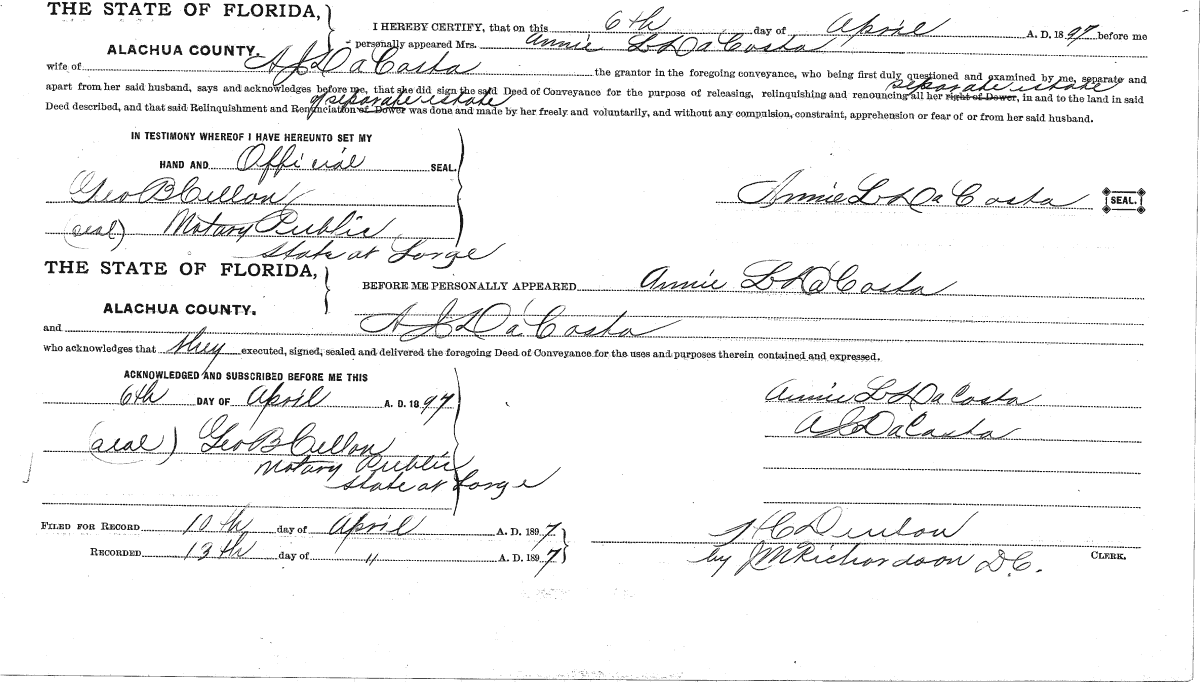 THE STATE OF FLORIDA,
ALACHUA COUNTY.
I HEREBY CERTIFY, that on this 6th day of April A. D. 1897 before me
personally appeared Mrs. Annie L DaCosta
wife of A J DaCosta the grantor in the foregoing conveyance, who being first duly questioned and examined by me, separate and
apart from her said husband, says and acknowledges before me, that she did sign the said Deed of Conveyance for the purpose of releasing, relinquishing and renouncing all her right of Dower, separate estate in and to the land in said
Deed described, and that said Relinquishment and Renunciation of Dower of separate estate was done and made by her freely and voluntarily, and without any compulsion, constraint, apprehension or fear of or from her said husband.
IN TESTIMONY WHEREOF I HAVE HEREUNTO SET MY
HAND AND Official SEAL.
Geo B Cellon
(seal) Notary Public
State at Large
Annie L DaCosta SEAL.
THE STATE OF FLORIDA,
ALACHUA COUNTY.
BEFORE ME PERSONALLY APPEARED Annie L DaCosta
and A J DaCosta
who acknowledges that they executed, signed, sealed and delivered the foregoing Deed of Conveyance for the uses and purposes therein contained and expressed.
ACKNOWLEDGED AND SUBSCRIBED BEFORE ME THIS
6th DAY OF April A. D. 1897
(seal) Geo B Cellon
Notary Public
State at Large
Annie L DaCosta
A J DaCosta
FILED FOR RECORD 10th day of April A. D. 1897
RECORDED 13th day of " A. D. 1897
H C Denton
by J M Richardson D.C. CLERK.